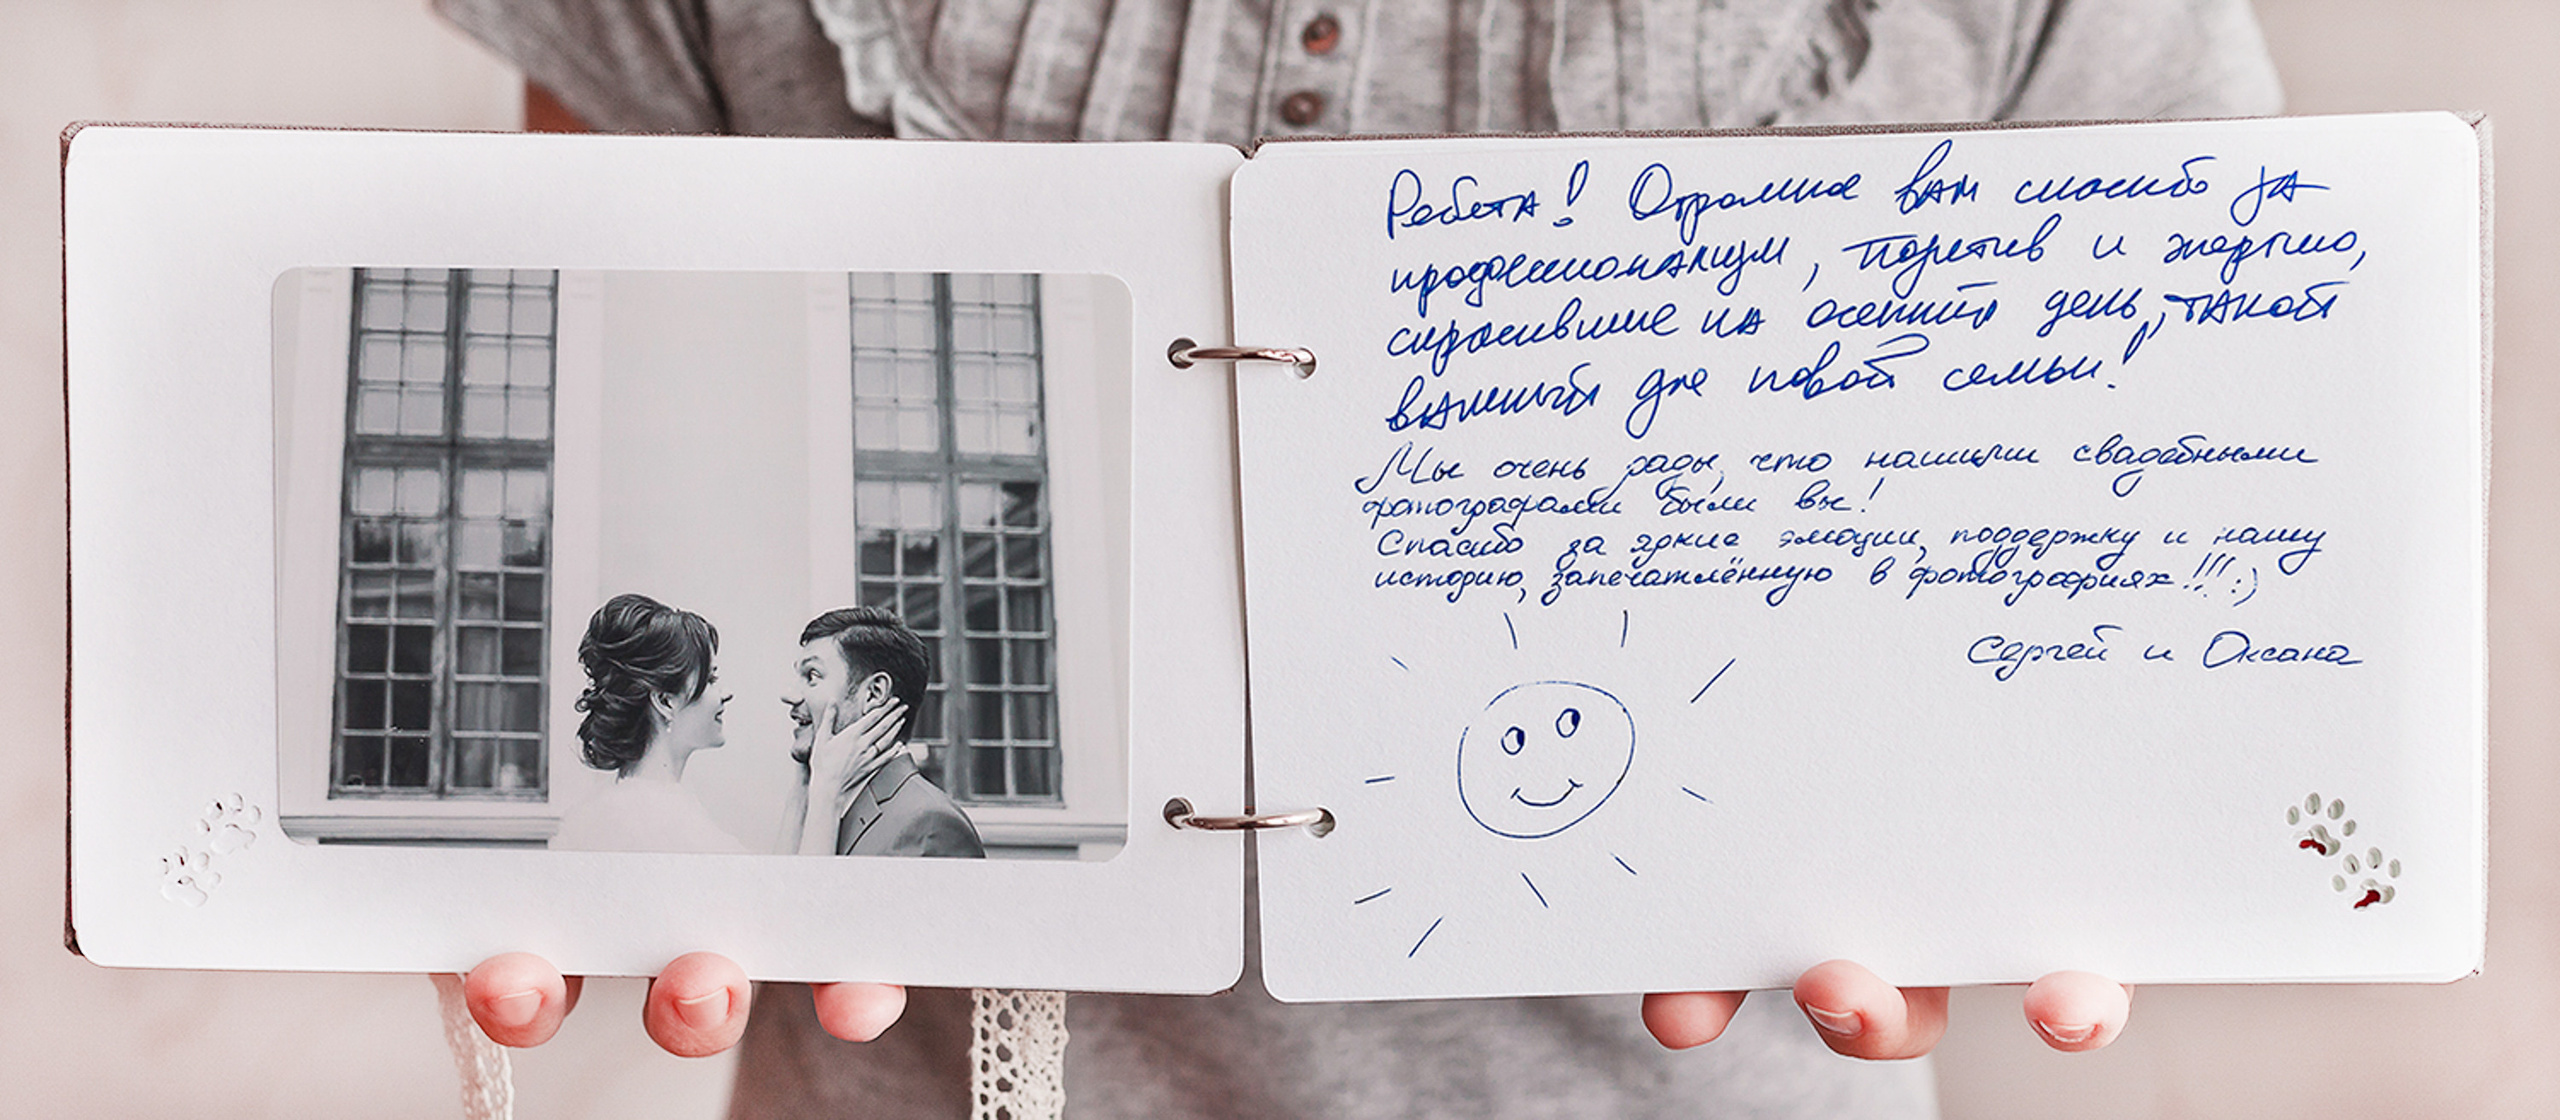 Ребята! Огромное вам спасибо за
профессионализм, позитив и энергию,
скрасившие на осенний день, такой
важный для новой семьи!
Мы очень рады, что нашими свадебными
фотографами были вы!
Спасибо за яркие эмоции, поддержку и нашу
историю, запечатлённую в фотографиях!!! :)
Сергей и Оксана